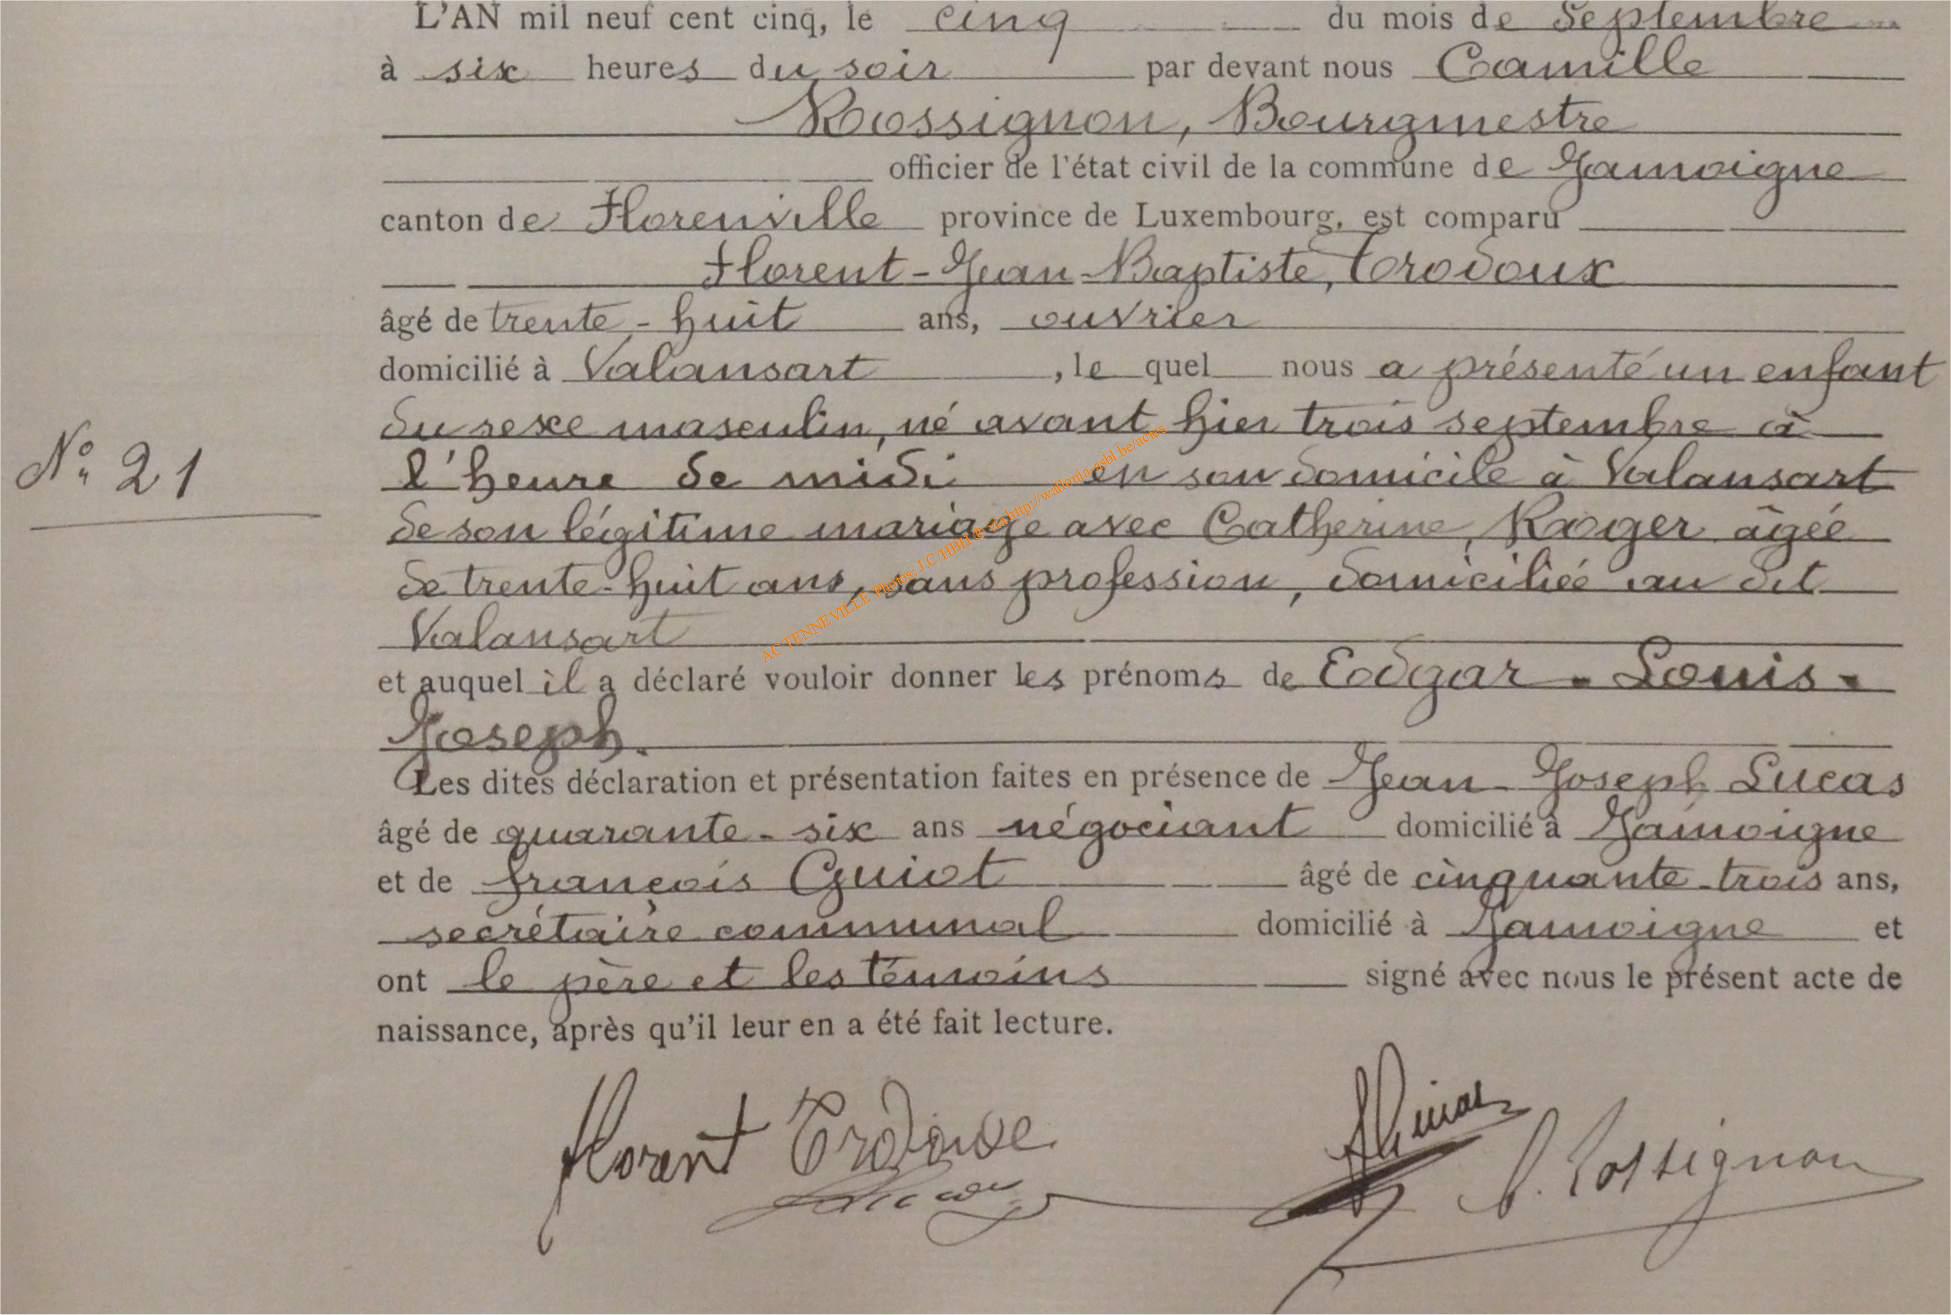 L'AN mil neuf cent cinq, le cinq du mois de Septembre
à six heures du soir par devant nous Camille
Rossignon, Bourgmestre
officier de l'état civil de la commune de Jamoigne
canton de Florenville province de Luxembourg, est comparu
Florent-Jean-Baptiste, Trodoux
âgé de trente-huit ans, ouvrier
domicilié à Valansart, le quel nous a présenté un enfant
du sexe masculin, né avant hier trois septembre à
l'heure de midi en son domicile à Valansart
de son légitime mariage avec Catherine, Roger âgée
de trente-huit ans, sans profession, domiciliée au dit
Valansart
et auquel il a déclaré vouloir donner les prénoms de Edgar-Louis-
Joseph.
Les dites déclaration et présentation faites en présence de Jean-Joseph Lucas
âgé de quarante-six ans négociant domicilié à Jamoigne
et de françois Guiot âgé de cinquante-trois ans,
secrétaire communal domicilié à Jamoigne et
ont le père et les témoins signé avec nous le présent acte de
naissance, après qu'il leur en a été fait lecture.
N° 21
florent Trodoux
C. Rossignon
AC TENNEVILLE Photos: J.C HDH